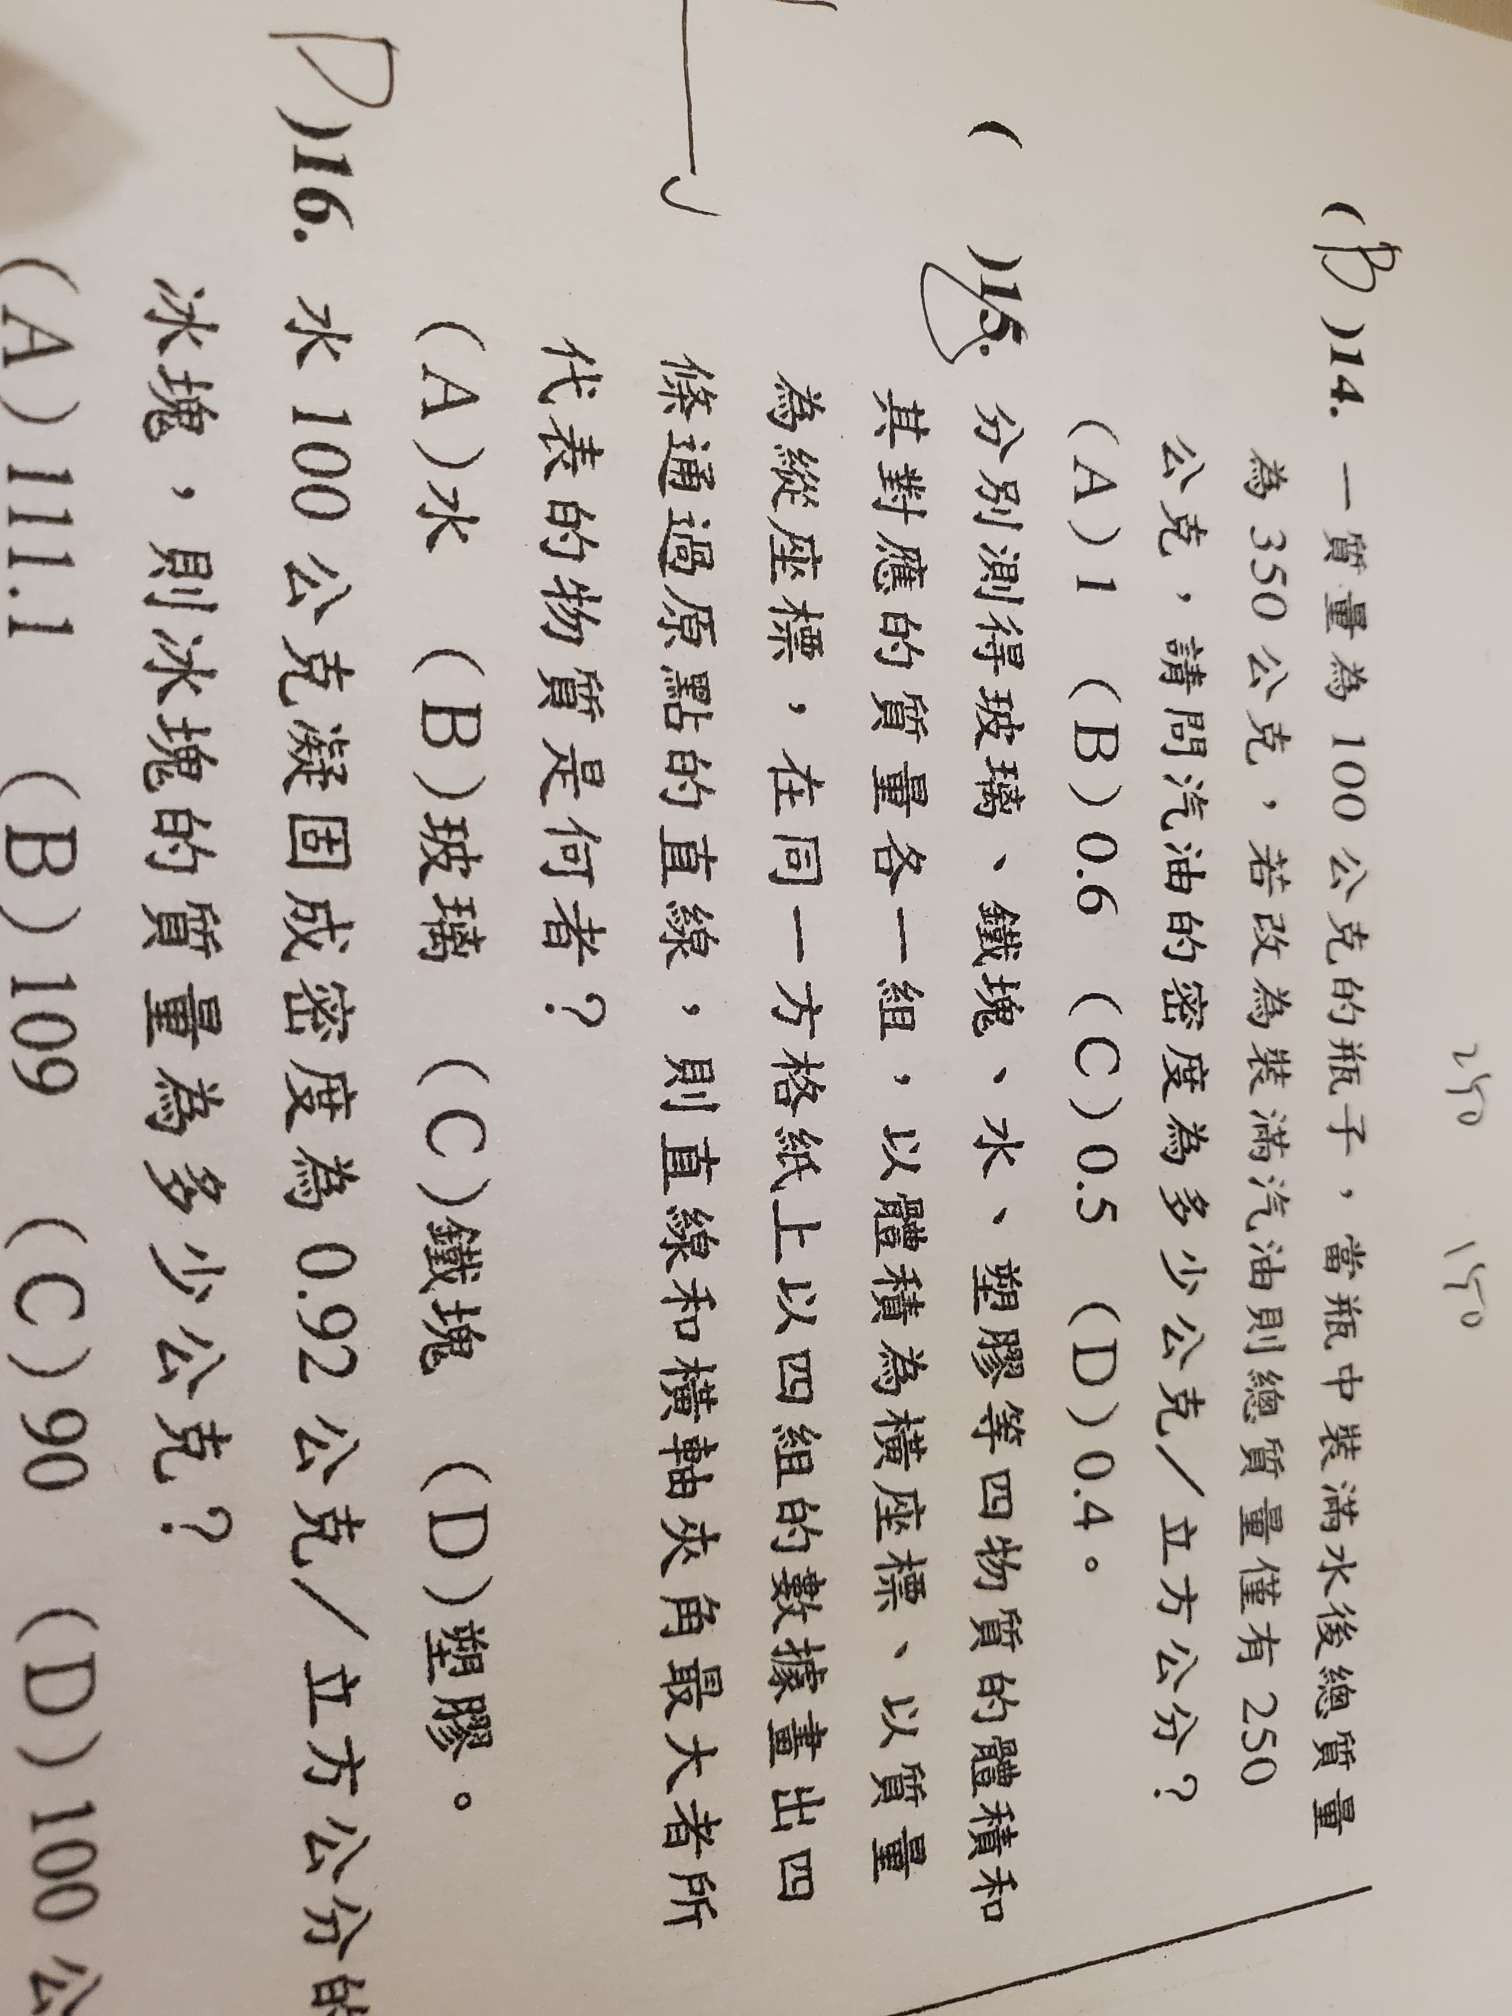 250 150
(B)14. 一質量為 100 公克的瓶子，當瓶中裝滿水後總質量
為 350 公克，若改為裝滿汽油則總質量僅有 250
公克，請問汽油的密度為多少公克／立方公分？
(A)1 (B)0.6 (C)0.5 (D)0.4。
( )15. 分別測得玻璃、鐵塊、水、塑膠等四物質的體積和
其對應的質量各一組，以體積為橫座標、以質量
為縱座標，在同一方格紙上以四組的數據畫出四
條通過原點的直線，則直線和橫軸夾角最大者所
代表的物質是何者？
(A)水 (B)玻璃 (C)鐵塊 (D)塑膠。
D)16. 水 100 公克凝固成密度為 0.92 公克／立方公分的
冰塊，則冰塊的質量為多少公克？
(A)111.1 (B)109 (C)90 (D)100 公